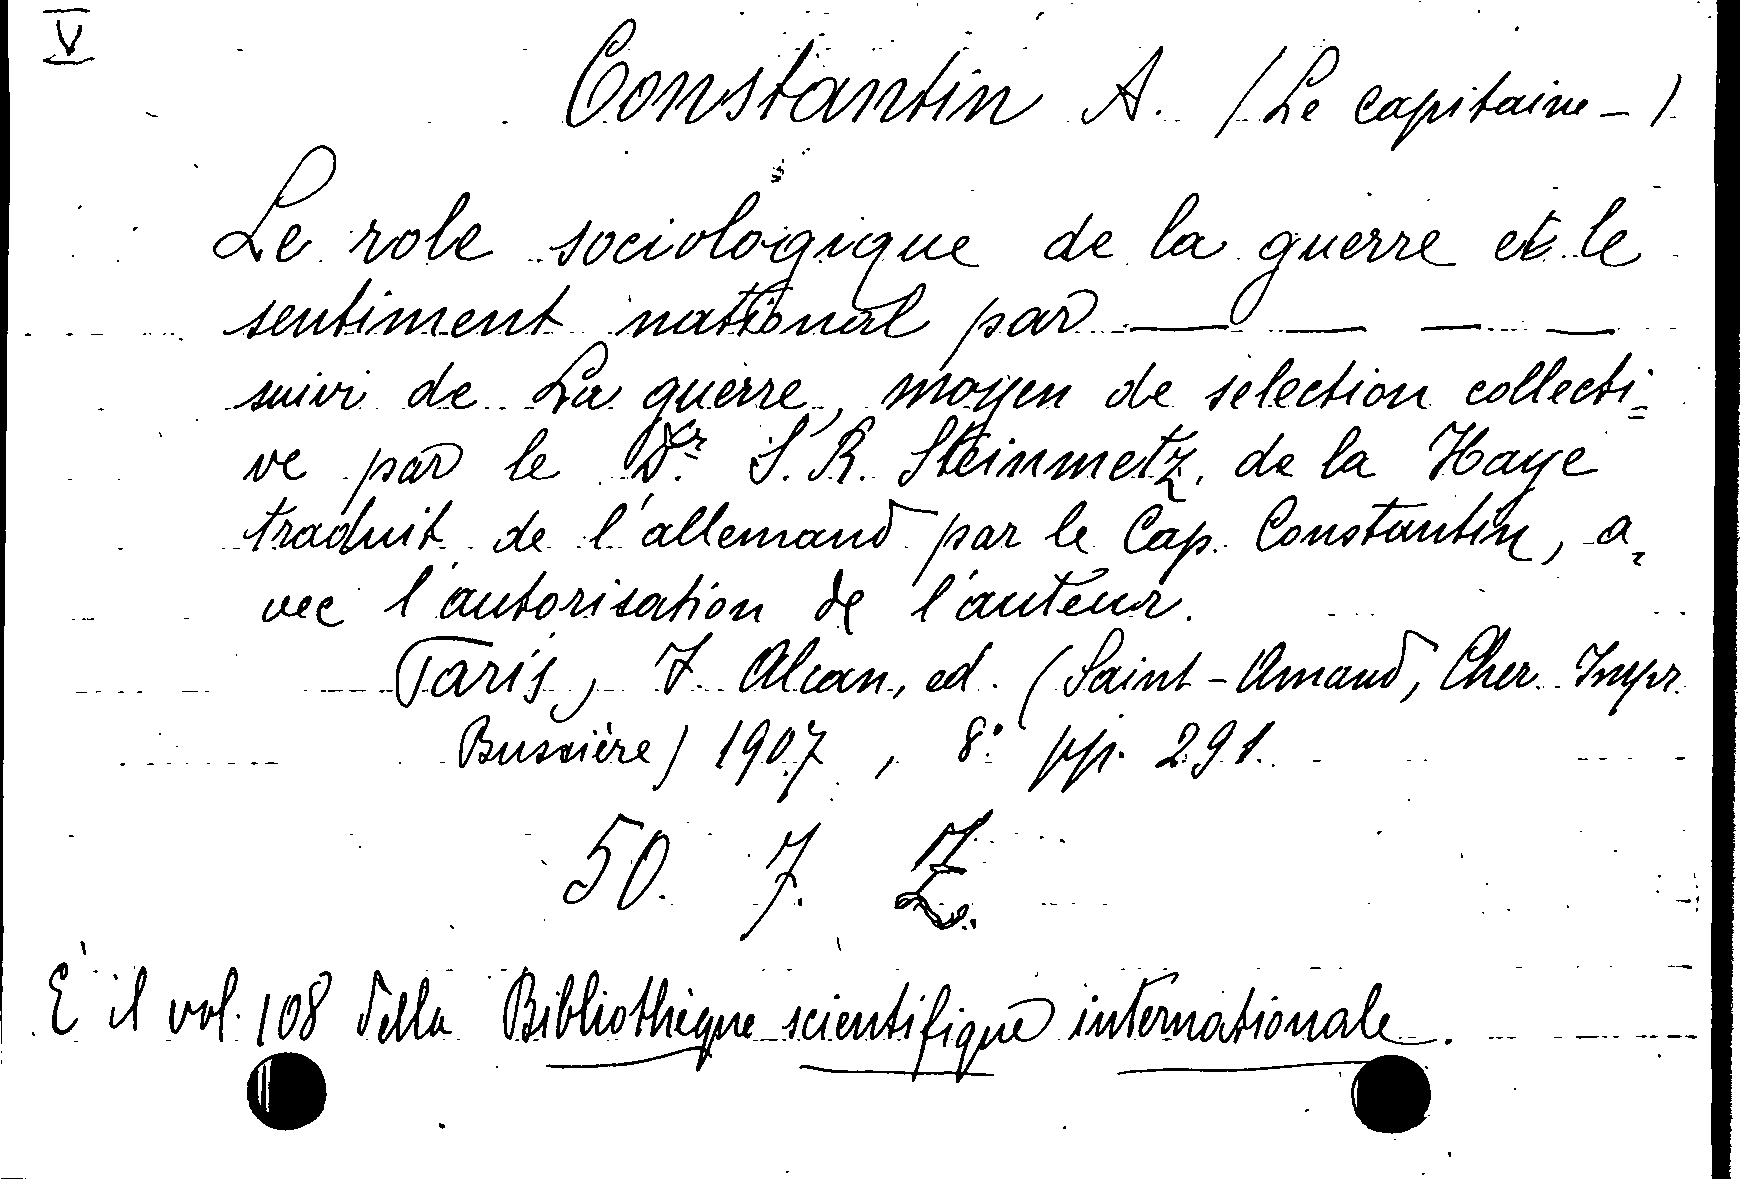 V
Constantin A. (Le capitaine –)
Le role sociologique de la guerre et le
sentiment national par — — — —
suivi de La guerre, moyen de sélection collecti=
ve par le Dr. S. R. Steinmetz, de la Haye
traduit de l'allemand par le Cap. Constantin, a=
vec l'autorisation de l'auteur.
Paris, F. Alcan, ed. (Saint-Amand, Cher. Impr.
Bussière) 1907, 8° pp. 291.
50. 7. Z.
E' il vol. 108 della Bibliothèque scientifique internationale.